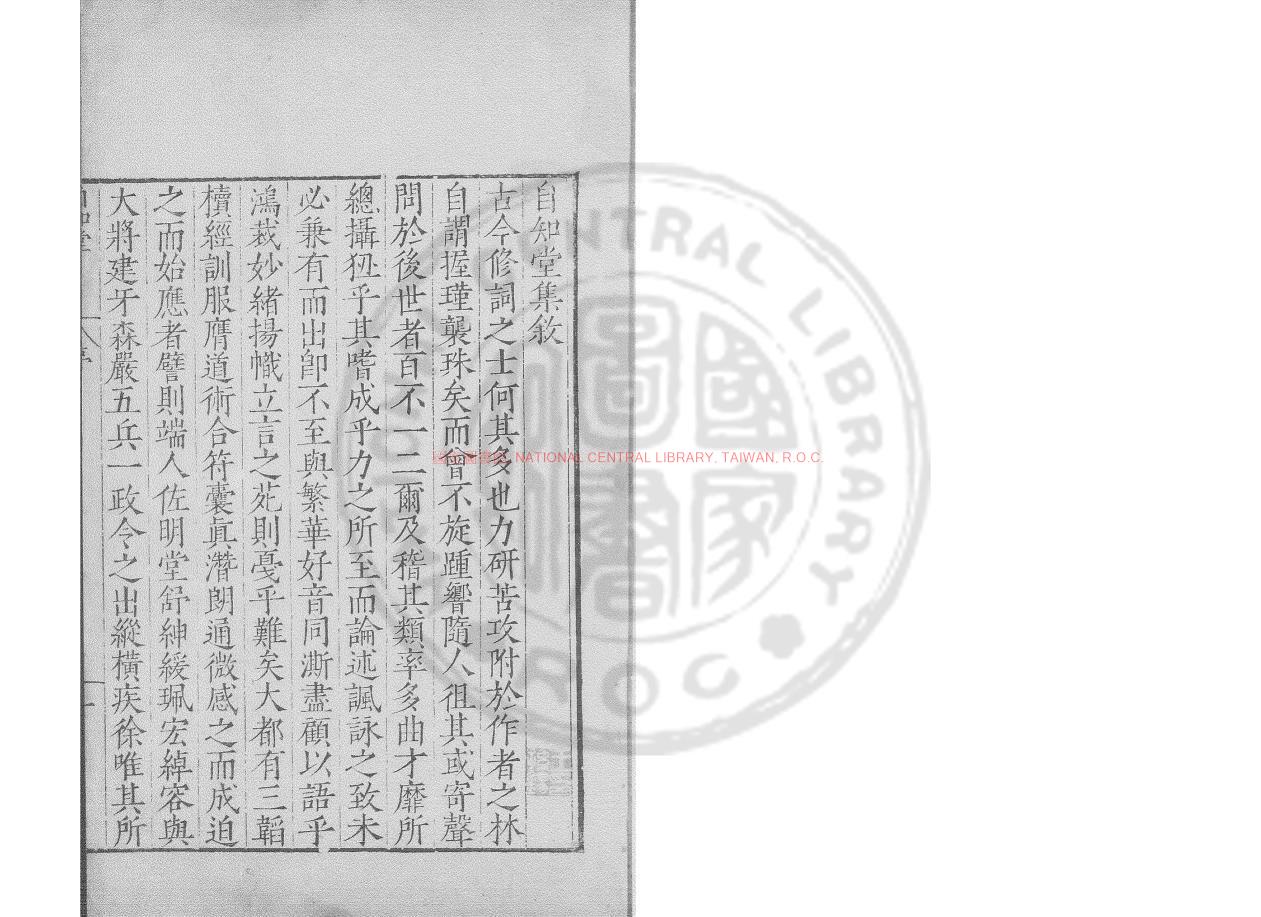 自知堂集敘
古今修詞之士何其多也力研苦攻附於作者之林
自謂握瑾襲珠矣而曾不旋踵響隨人徂其或寄聲
問於後世者百不一二爾及稽其類率多曲才靡所
總攝狃乎其嗜成乎力之所至而論述諷詠之致未
必兼有而出卽不至與繁華好音同澌盡顧以語乎
鴻裁妙緒揚幟立言之苑則戞乎難矣大都有三韞
櫝經訓服膺道術合符囊眞濳朗通微感之而成迫
之而始應者譬則端人佐明堂舒紳緩珮宏綽容與
大將建牙森嚴五兵一政令之出縱橫疾徐唯其所
序
NATIONAL CENTRAL LIBRARY, TAIWAN, R.O.C.
CENTRAL LIBRARY R O C
國家圖書館